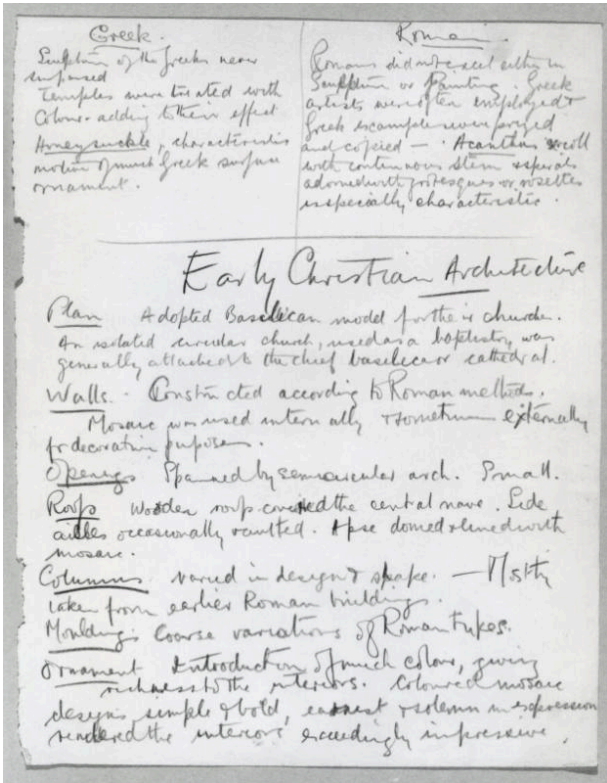 Greek.
Sculpture of the Greeks never
surpassed
Temples were treated with
Colour adding to their effect
Honeysuckle, characteristic
motive of much Greek surface
ornament.
Roman.
Romans did not excel either in
Sculpture or Painting. Greek
artists were often employed &
Greek examples were prized
and copied — . Acanthus scroll
with continuous stem & spirals
adorned with grotesques or rosettes
is specially characteristic.
Early Christian Architecture
Plan Adopted Basilican model for their churches.
An isolated circular church, used as a baptistry, was
generally attached to the chief basilica or cathedral.
Walls. Constructed according to Roman methods.
Mosaic was used internally & sometimes externally
for decorative purposes.
Openings Spanned by semicircular arch. Small.
Roofs Wooden roofs covered the central nave. Side
aisles occasionally vaulted. Apse domed & lined with
mosaic.
Columns varied in design & shape. — Mostly
taken from earlier Roman buildings.
Mouldings Coarse variations of Roman types.
Ornament Introduction of much colour, giving
richness to the interiors. Coloured mosaic
designs, simple & bold, earnest & solemn in expression
rendered the interiors exceedingly impressive.